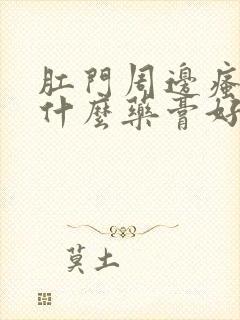 肛門周邊瘙
什麼藥膏好
莫土